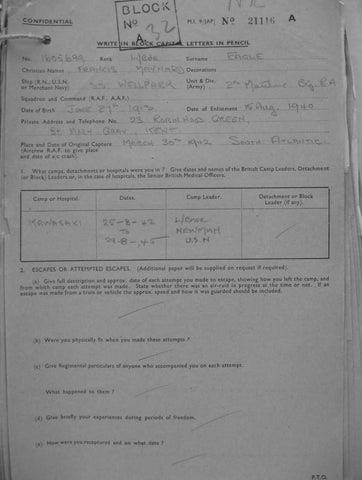 CONFIDENTIAL
BLOCK
No
A 32
M.I. 9/JAP/ No 21116 A
WRITE IN BLOCK CAPITAL LETTERS IN PENCIL
No. 1605699 Rank L/Bdr Surname EAGLE
Christian Names FRANCIS MAYNARD Decorations
Ship (R.N., U.S.N. or Merchant Navy) S.S. WELLPARK Unit & Div. (Army) 2nd Maritime R.A
Squadron and Command (R.A.F. A.A.F.)
Date of Birth JUNE Date of Enlistment Aug. 1940
Private Address and Telephone No. 23 ROBIN HOOD GREEN,
ST. MARY CRAY, KENT
Place and Date of Original Capture MARCH 30th 1942 SOUTH ATLANTIC.
(Aircrew R.A.F. to give place
and date of a/c crash).
1. What camps, detachments or hospitals were you in? Give dates and names of the British Camp Leaders, Detachment
(or Block) Leaders or, in the case of hospitals, the Senior British Medical Officers.
Camp or Hospital. Dates. Camp Leader. Detachment or Block Leader (if any).
KAWASAKI 25-8-42 L/Cdr
TO NEWMAN
29-8-45 U.S.N
2. ESCAPES OR ATTEMPTED ESCAPES. (Additional paper will be supplied on request if required).
(a) Give full description and approx. date of each attempt you made to escape, showing how you left the camp, and
from which camp each attempt was made. State whether there was an air-raid in progress at the time or not. If an
escape was made from a train or vehicle the approx. speed and how it was guarded should be included.
(b) Were you physically fit when you made these attempts?
(c) Give Regimental particulars of anyone who accompanied you on each attempt.
What happened to them?
(d) Give briefly your experiences during periods of freedom.
(e) How were you recaptured and on what date?
P.T.O.